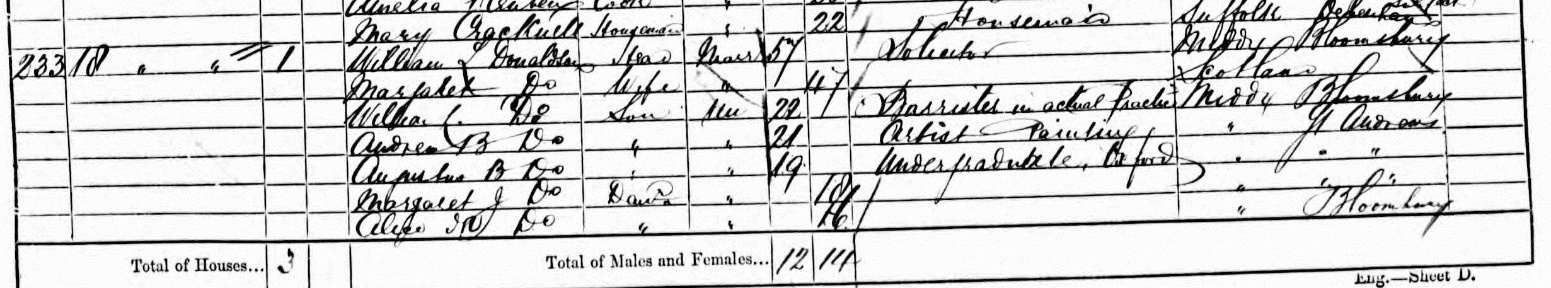 Amelia Cook
Mary Cracknell " 22 Housemaid Suffolk
233 18 " " 1 William L Donaldson Head Marr 57 Solicitor Middx Bloomsbury
Margaret Do Wife " 47 Scotland
William C. Do Son Un 22 Barrister in actual Practice Middx Bloomsbury
Andrew B Do " " 21 Artist Painting " St Andrews
Augustus B Do " " 19 Undergraduate, Oxford " " "
Margaret J Do Daur " 18 " " "
Alice M Do " " 16 " Bloomsbury
Total of Houses... 3 Total of Males and Females... 12 14
Eng.—Sheet D.